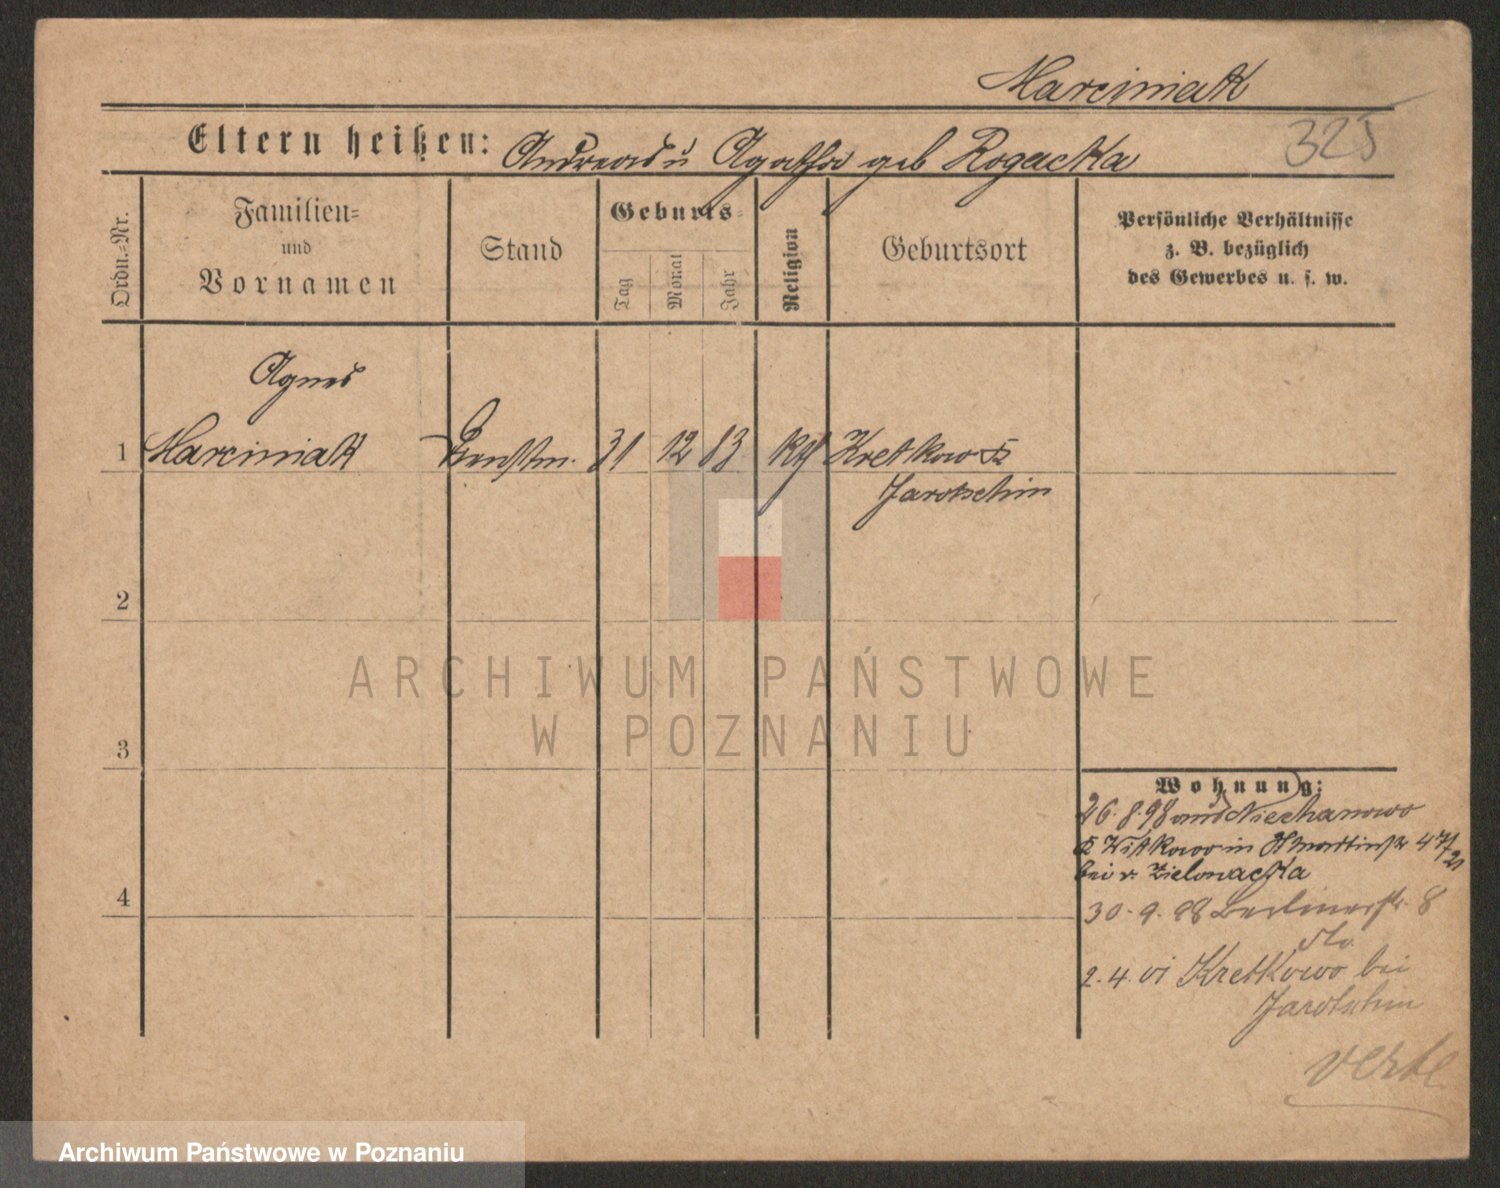 Marciniak
325
Eltern heißen: Andreas u Agatha geb Rogacka
Ordn.-Nr.
Familien=
und
Vornamen
Stand
Geburts=
Tag
Monat
Jahr
Religion
Geburtsort
Persönliche Verhältnisse
z. B. bezüglich
des Gewerbes u. s. w.
Agnes
1 Marciniak Dienstm. 31 12 83 kth Kretkow Kr
Jarotschin
2
3
4
ARCHIWUM PAŃSTWOWE
W POZNANIU
Wohnung:
26.8.98 aus Niechanowo
Kr Witkowo in Martinstr 47/21
bei v.
30.9.98 Berlinerstr. 8
2.4.01 Kretkowo bei
Jarotschin
verte
Archiwum Państwowe w Poznaniu